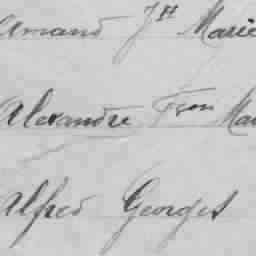 Amand Jh Marie
Alexandre Fçois Ma
Alfred Georges